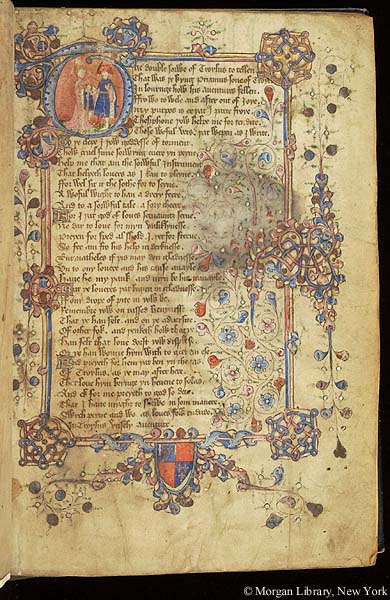 The double sorwe of Troylus to tellen
That was þe kyng Priamus sone of Troye
In louynge how his auentures fellen
ffro wo to wele and after out of Ioye
My purpos is er þat I parte fro ye
Thesiphone þow help me for tendite
These woful vers þat wepen as I write
To þe clepe I þow goddesse of torment
Thow cruel furie sorwyng euere yn peyne
Help me that am the sorwful Instrument
That helpeth loueres as I kan to pleyne
ffor wel sit it the sothe for to seyne
A woful wight to han a drery feere
And to a sorwful tale a sory cheere
ffor I þat god of loues seruauntz serue
Ne dar to loue for myn vnliklynesse
Preyen for sped al sholde I þerfor sterue
So fer am I fro his help in derknesse
But natheles if þis may don gladnesse
Vn to ony louere and his cause auayle
Haue he my þank and myn be his trauayle
But ye loueres þat bathen in gladnesse
If ony drope of pite in yow be
Remembre yow on passed heuynesse
That ye han felt and on þe aduersite
Of other folk and þenketh how that ye
Han felt that loue dorst yow displese
Or ye han wonne hym with to gret an ese
And preyeth for hem þat ben yn the cas
Of Troylus as ye may after here
That loue hem brynge yn heuene to solas
And ek for me preyeth to god so dere
That I haue myght to shewe in som manere
Swych peyne and wo as loues folk endure
In Troylus vnsely auenture
© Morgan Library, New York